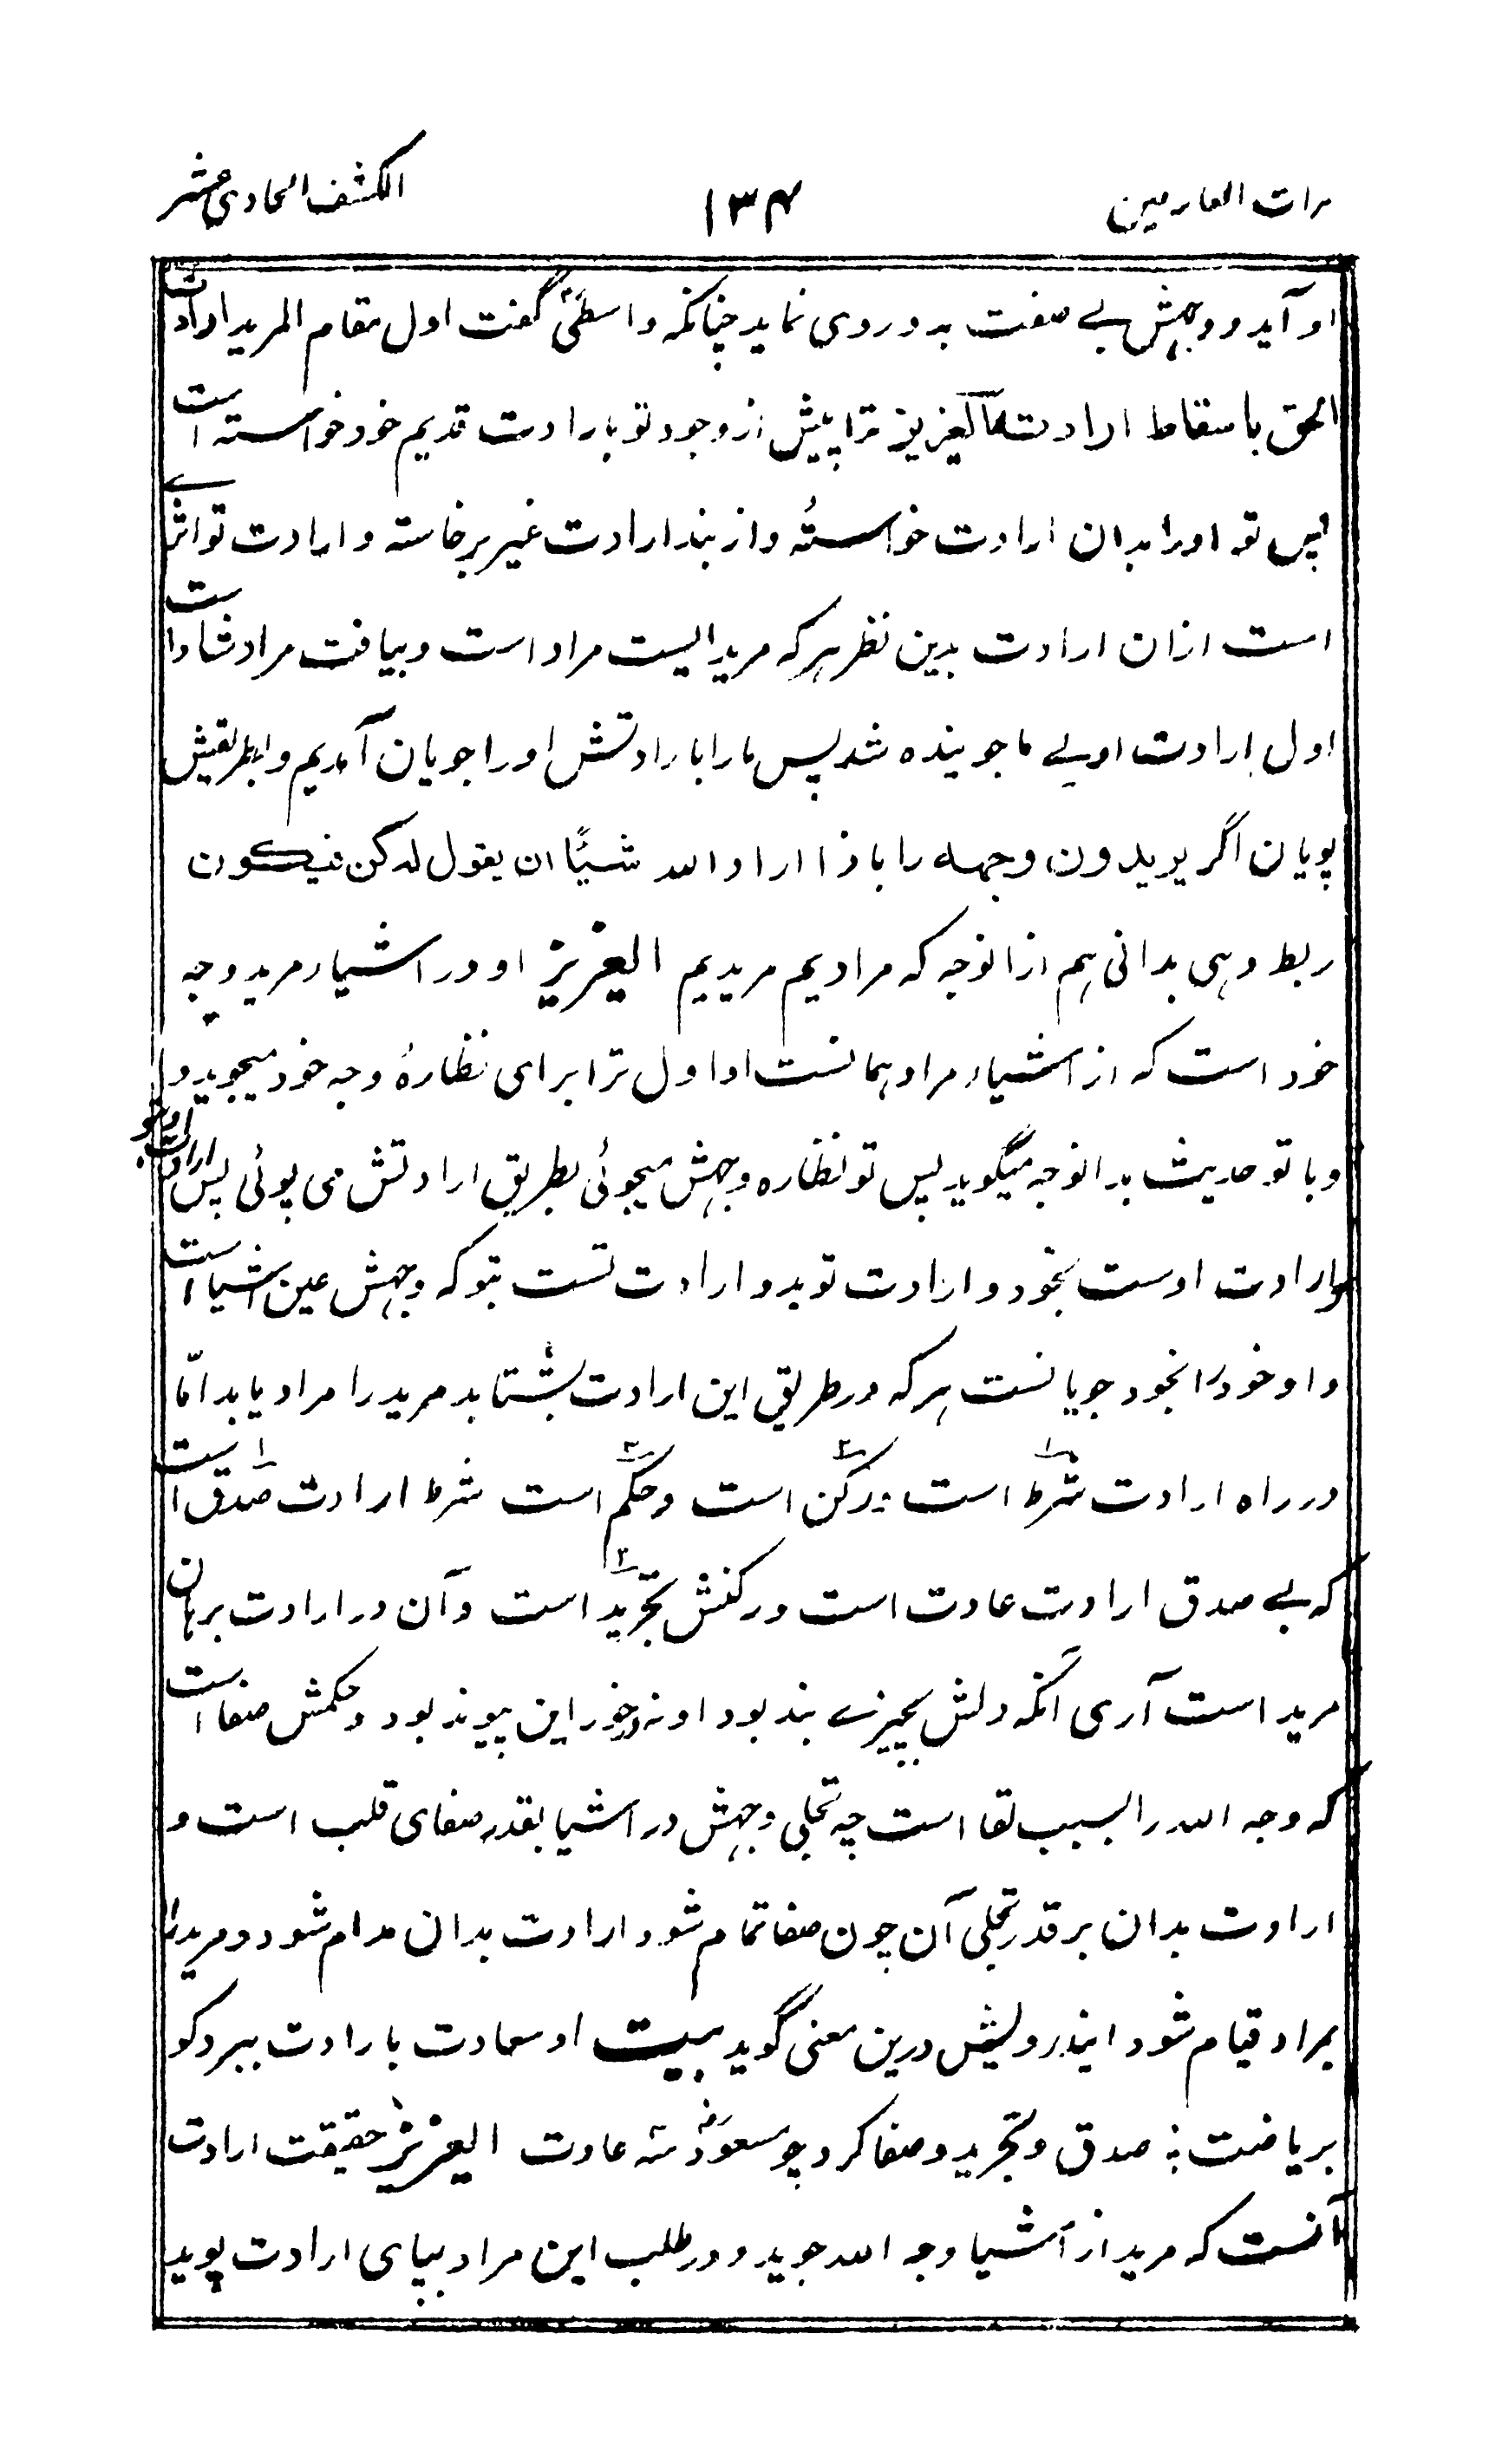 مرات العارفین
۱۳۴
الکشف الحادی عشر
او آید و وجهش بے صفت بدو روی نماید چنانکه واسطیؒ گفت اول مقام المرید ارادت
الحق باسقاط ارادته العزیز ترا پیش از وجود تو بارادت قدیم خود خواسته است
پس تو او را بدان ارادت خواستهٔ و از بند ارادت غیر برخاسته و ارادت تو اثرے
است ازان ارادت بدین نظر هرکه مریدالیست مراد است و بیافت مراد شاد است
اول ارادت او بے ما جوینده شد پس ما را بارادتش او را جویان آمدیم و بطریقش
پویان اگر یریدون وجهه را با اذا اراد الله شیئًا ان یقول له کن فیکون
ربط دهی بدانی هم ازانوجه که مرادیم مریدیم العزیز او در اشیاء مرید وجه
خود است که از اشیاء مراد همانست او اول ترا برای نظارهٔ وجه خود میجوید و
و با تو حدیث بدانوجه میگوید پس تو نظاره وجهش میجوئی بطریق ارادتش می پوئی پس ارادت او بتو
ارادت اوست بخود و ارادت تو بدو ارادت تست بتو که وجهش عین اشیا است
و او خود را بخود جویانست هرکه در طریق این ارادت بشتابد مرید را مراد یابد امّا
در راه ارادت شرط است و رکن است و حکم است شرط ارادت صدق است
که بے صدق ارادت عادت است و رکنش تجرید است و آن در ارادت برهان
مرید است آری آنکه دلش بچیزے بند بود او نه درخور این پیوند بود و حکمش صفا است
که وجه الله را بسبب لقا است چه تجلی وجهش در اشیا بقدر صفای قلب است و
ارادت بدان بر قدر تجلی آن چون صفا تمام شود ارادت بدان مدام شود و مرید را
بمراد قیام شود ایندرویش درین معنی گوید بیت او سعادت بارادت ببرد کو
بریاضت ؛ صدق و تجرید و صفا کرد چو مسعودؒ شه عادت العزیز حقیقت ارادت
آنست که مرید از اشیا وجه الله جوید و در طلب این مراد بپای ارادت پوید